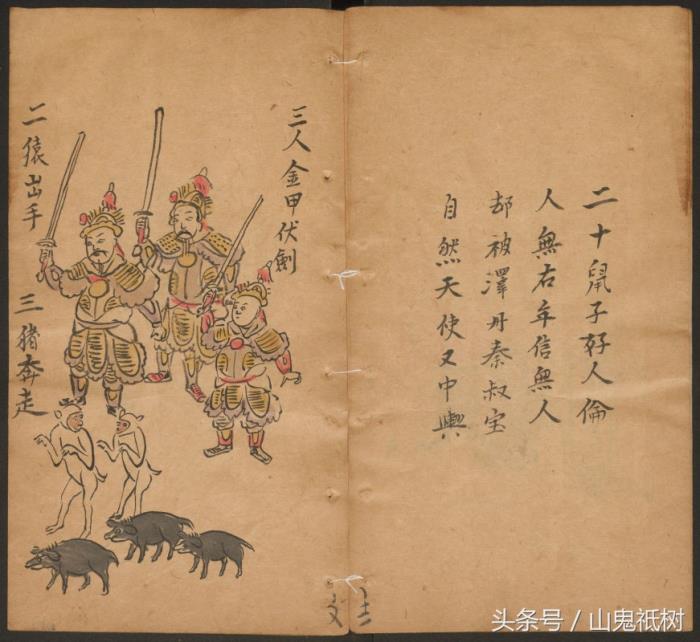 二十鼠子好人倫
人無右年信無人
却被澤丹秦叔宝
自然天使又中興
三人金甲伏劍
二猿出手
三猪奔走
头条号 / 山鬼祇树